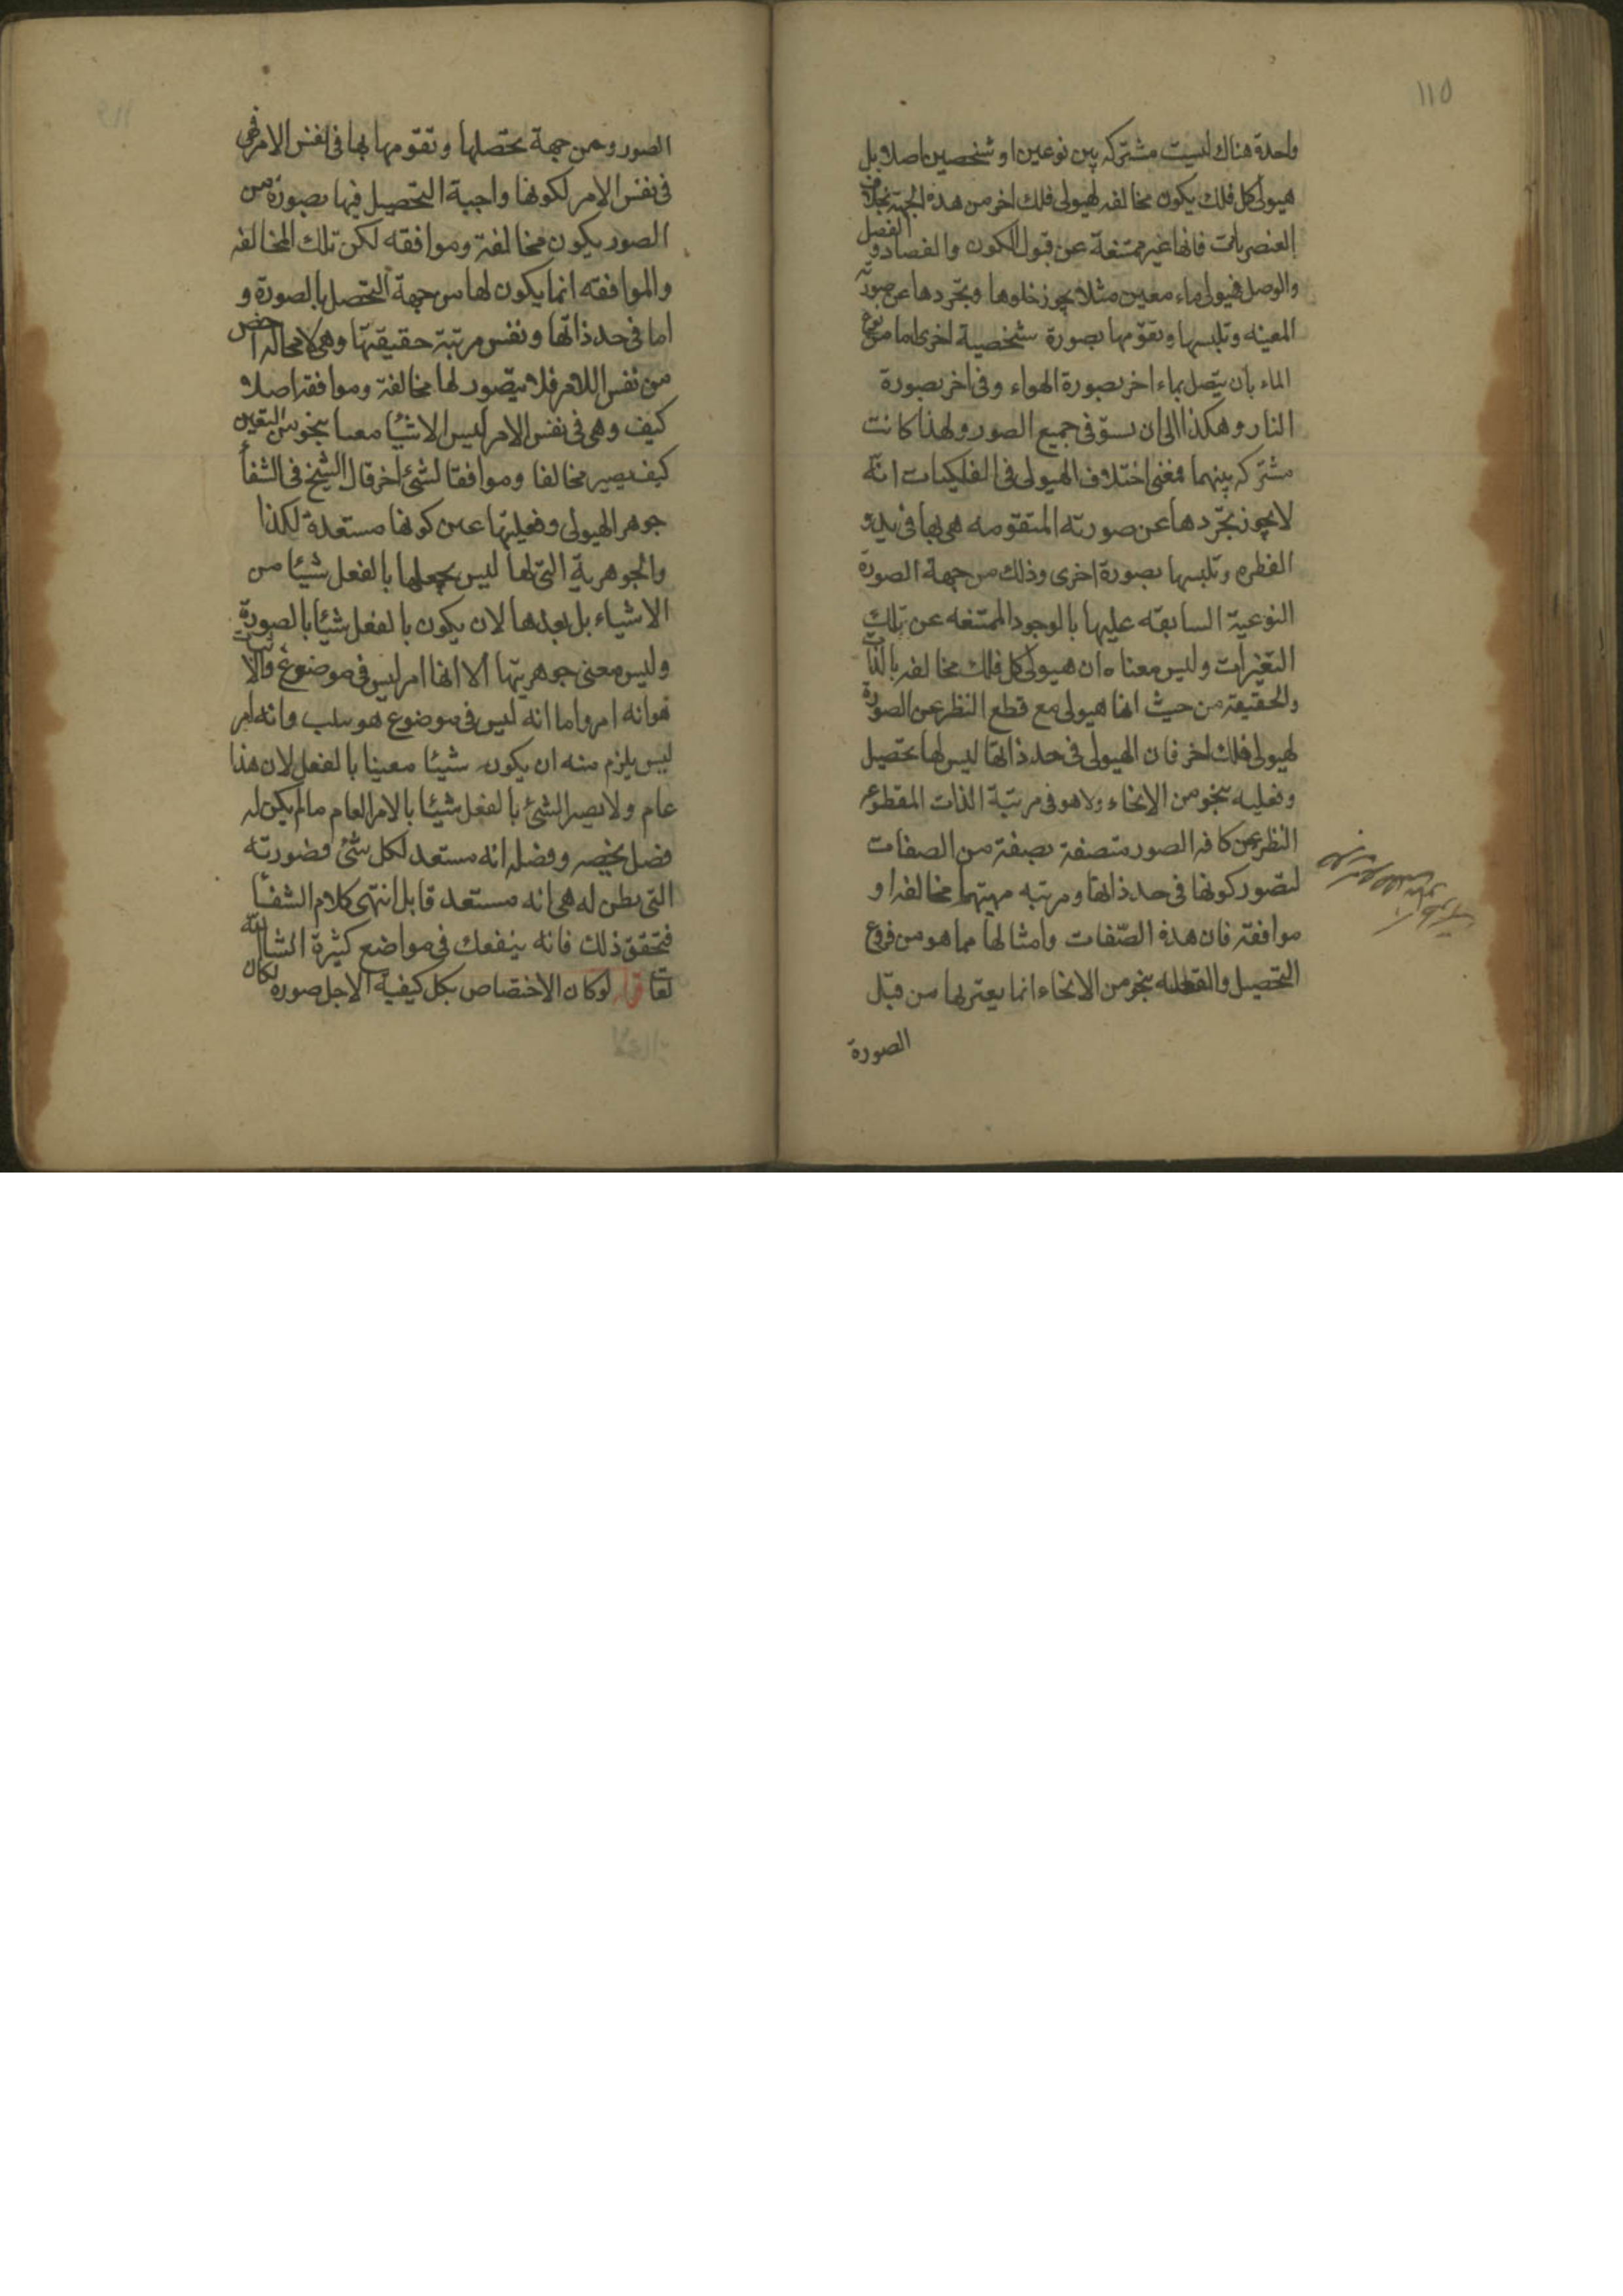 ١١٥
واحدة هناك ليست مشتركه بين نوعين او شخصين اصلا بل
هيولى كل فلك يكون مخالفه لهيولى فلك اخر من هذه الجهة بخلاف
العنصريات فانها غير ممتنعة عن قبول الكون والفساد و الفصل
والوصل فهيولى ماء معين مثلا يجوز خلوها وتجردها عن صورته
المعينه وتلبسها وتقومها بصورة شخصية اخرى اما من نوع
الماء بان يتصل بماء اخر بصورة الهواء وفى اخر بصورة
النار وهكذا الى ان يستوفى جميع الصور ولهذا كانت
مشتركه بينهما فمعنى اختلاف الهيولى فى الفلكيات انه
لا يجوز تجردها عن صورته المتقومه هى بها فى بدو
الفطره وتلبسها بصورة اخرى وذلك من جهة الصورة
النوعية السابقه عليها بالوجود الممتنعه عن تلك
التغيرات وليس معناه ان هيولى كل فلك مخالفه بالذات
والحقيقة من حيث انها هيولى مع قطع النظر عن الصورة
لهيولى فلك اخر فان الهيولى فى حد ذاتها ليس لها تحصيل
وفعليه بنحو من الانحاء ولا هو فى مرتبة الذات المقطوع
النظر عن كافه الصور متصفة بصفة من الصفات
لتصور كونها فى حد ذاتها ومرتبه مهيتها مخالفه او
موافقة فان هذه الصفات وامثالها مما هو من فروع
التحصيل والفعليه بنحو من الانحاء انما يعتريها من قبل
الصورة
الصور ومن جهة تحصلها وتقومها بها فى نفس الامر فهى
فى نفس الامر لكونها واجبة التحصيل فيها بصورة من
الصور يكون مخالفة وموافقه لكن تلك المخالفه
والموافقه انما يكون لها من جهة التحصل بالصورة و
اما فى حد ذاتها ونفس مرتبة حقيقتها وهى لا محاله اخص
من نفس الامر فلا يتصور لها مخالفة وموافقه اصلا
كيف وهى فى نفس الامر ليس الا شيئا معينا بنحو من التعين
كيف يصير مخالفا وموافقا لشئ اخر قال الشيخ فى الشفا
جوهر الهيولى وفعليتها عين كونها مستعدة لكذا
والجوهرية التى لها ليس يجعلها بالفعل شيئا من
الاشياء بل يعدها لان يكون بالفعل شيئا بالصورة
وليس معنى جوهريتها الا انها امر ليس فى موضوع والاثبات
هو انه امر واما انه ليس فى موضوع هو سلب وانه امر
ليس يلزم منه ان يكون شيئا معينا بالفعل لان هذا
عام ولا يصير الشئ بالفعل شيئا بالامر العام ما لم يكن له
فصل يخصه وفصله انه مستعد لكل شئ فصورته
التى يظن له هى انه مستعد قابل انتهى كلام الشفا
فتحقق ذلك فانه ينفعك فى مواضع كثيرة انشا الله
تعا قال لو كان الاختصاص بكل كيفية الاجل صورة لكان